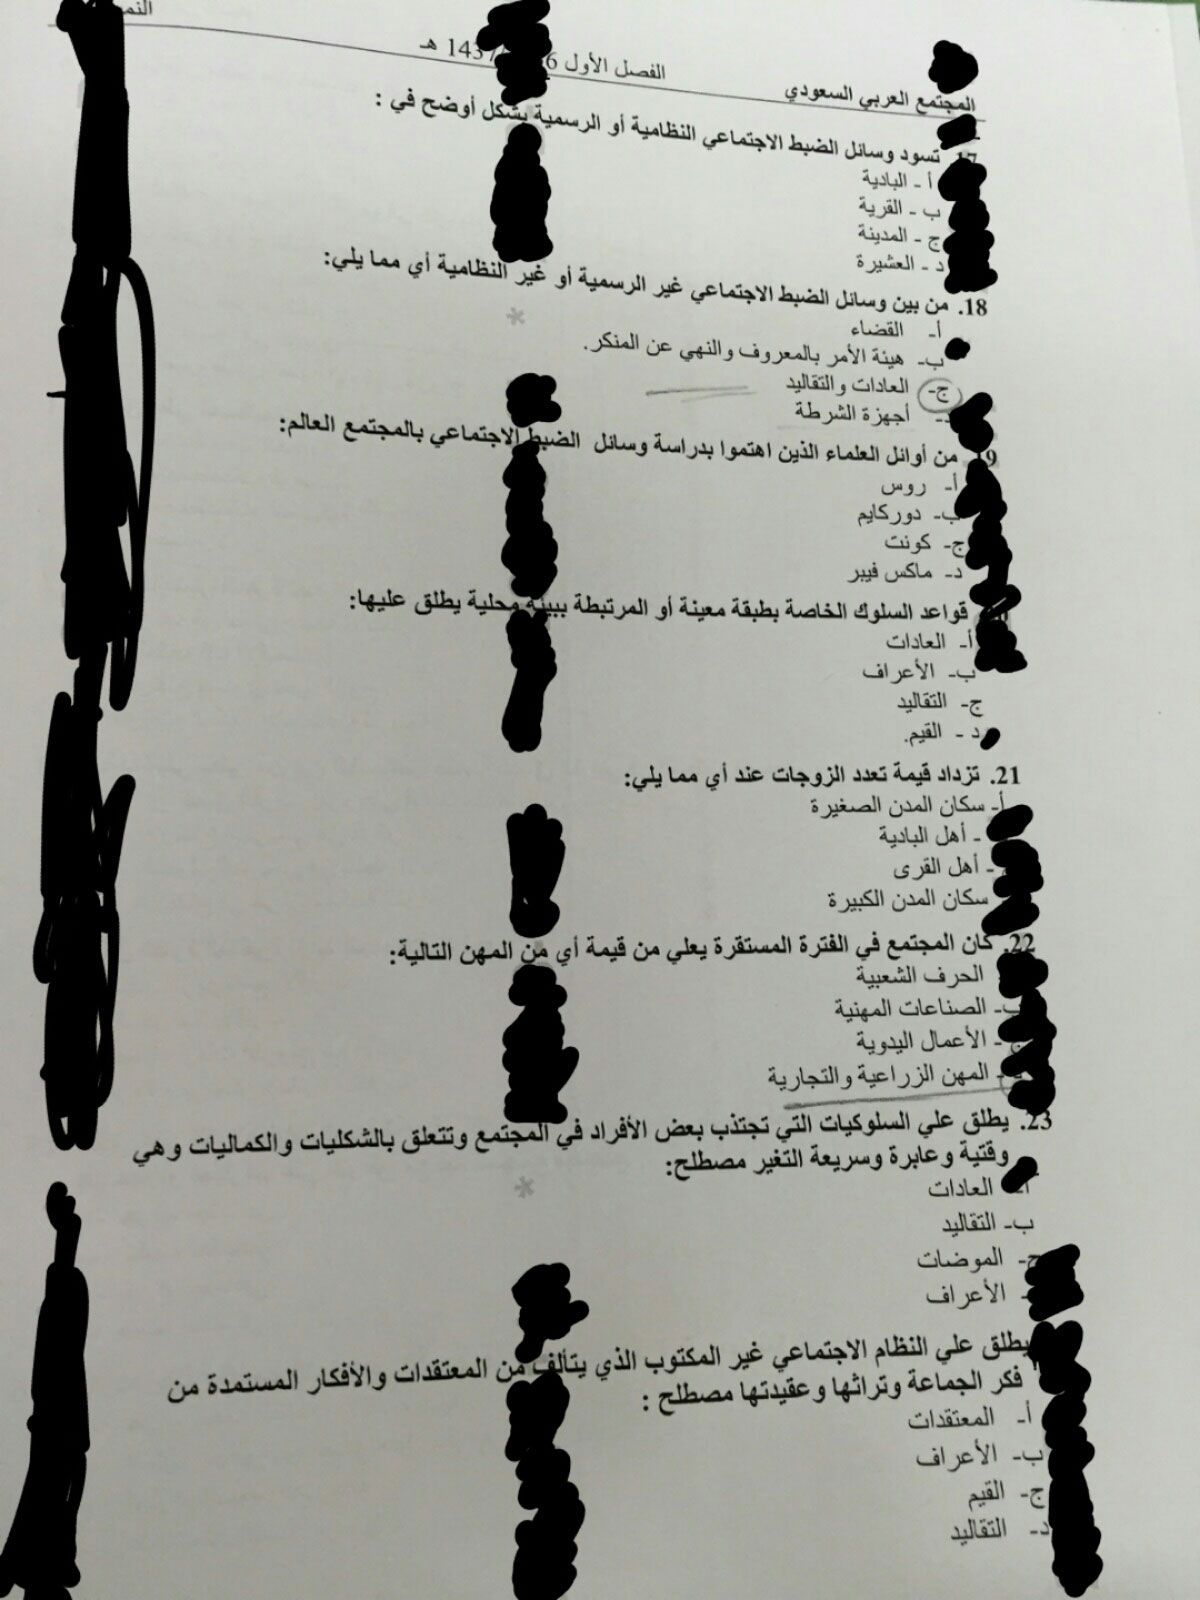 المجتمع العربي السعودي
الفصل الأول
هـ
تسود وسائل الضبط الاجتماعي النظامية أو الرسمية بشكل أوضح في :
أ - البادية
ب - القرية
ج - المدينة
د - العشيرة
18. من بين وسائل الضبط الاجتماعي غير الرسمية أو غير النظامية أي مما يلي:
أ- القضاء
ب- هيئة الأمر بالمعروف والنهي عن المنكر.
ج- العادات والتقاليد
د- أجهزة الشرطة
من أوائل العلماء الذين اهتموا بدراسة وسائل الضبط الاجتماعي بالمجتمع العالم:
أ- روس
ب- دوركايم
ج- كونت
د- ماكس فيبر
قواعد السلوك الخاصة بطبقة معينة أو المرتبطة ببيئة محلية يطلق عليها:
أ- العادات
ب- الأعراف
ج- التقاليد
د - القيم.
21. تزداد قيمة تعدد الزوجات عند أي مما يلي:
أ- سكان المدن الصغيرة
- أهل البادية
- أهل القرى
سكان المدن الكبيرة
22. كان المجتمع في الفترة المستقرة يعلي من قيمة أي من المهن التالية:
الحرف الشعبية
ب- الصناعات المهنية
ج- الأعمال اليدوية
- المهن الزراعية والتجارية
23. يطلق علي السلوكيات التي تجتذب بعض الأفراد في المجتمع وتتعلق بالشكليات والكماليات وهي
وقتية وعابرة وسريعة التغير مصطلح:
أ- العادات
ب- التقاليد
ج- الموضات
- الأعراف
يطلق علي النظام الاجتماعي غير المكتوب الذي يتألف من المعتقدات والأفكار المستمدة من
فكر الجماعة وتراثها وعقيدتها مصطلح :
أ- المعتقدات
ب- الأعراف
ج- القيم
د- التقاليد